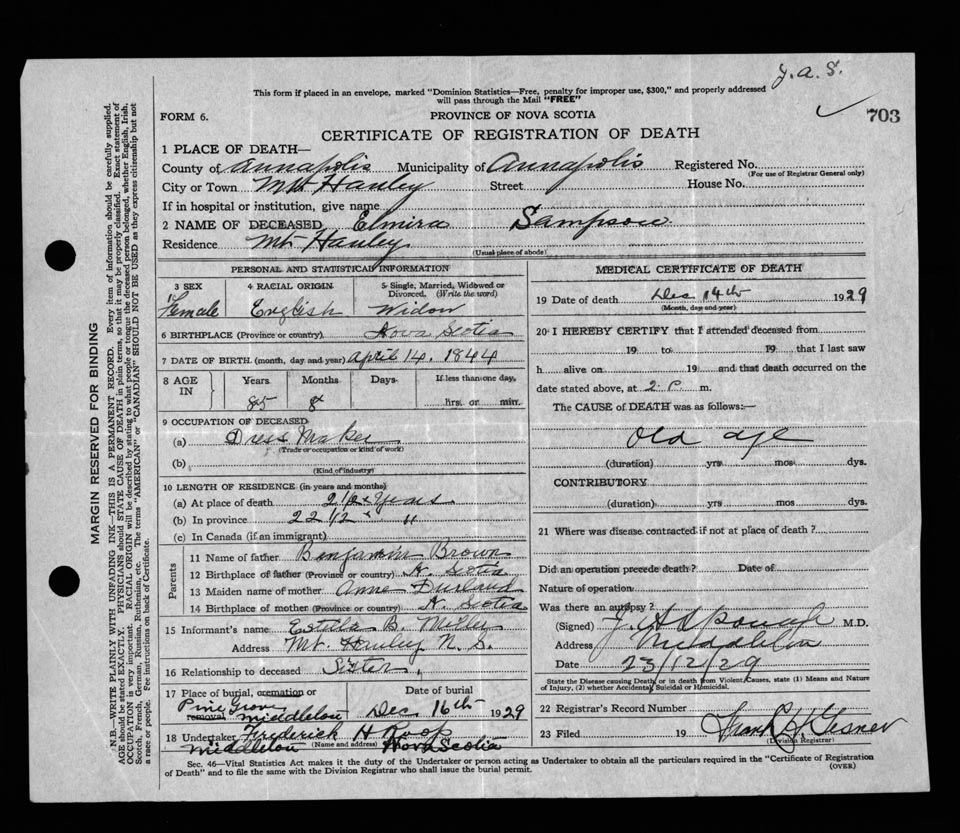 J. A. S.
This form if placed in an envelope, marked "Dominion Statistics—Free, penalty for improper use, $300," and properly addressed
will pass through the Mail "FREE"
703
FORM 6.
PROVINCE OF NOVA SCOTIA
CERTIFICATE OF REGISTRATION OF DEATH
1 PLACE OF DEATH—
County of Annapolis Municipality of Annapolis Registered No.
(For use of Registrar General only)
City or Town Mt Hanley Street House No.
If in hospital or institution, give name
2 NAME OF DECEASED Elmira Sampson
Residence Mt Hanley
(Usual place of abode)
PERSONAL AND STATISTICAL INFORMATION
3 SEX 4 RACIAL ORIGIN 5 Single, Married, Widowed or
Divorced. (Write the word)
Female English Widow
6 BIRTHPLACE (Province or country) Nova Scotia
7 DATE OF BIRTH (month, day and year) April 14, 1844
8 AGE IN Years Months Days If less than one day,
85 8 hrs. or min.
9 OCCUPATION OF DECEASED
(a) Dress Maker
(Trade or occupation or kind of work)
(b)
(Kind of industry)
10 LENGTH OF RESIDENCE (in years and months)
(a) At place of death 2 1/2 Years
(b) In province 22 1/2 "
(c) In Canada (if an immigrant)
Parents
11 Name of father Benjamin Brown
12 Birthplace of father (Province or country) N. Scotia
13 Maiden name of mother Anne Durland
14 Birthplace of mother (Province or country) N. Scotia
15 Informant's name B. Miller
Address Mt. Hanley N. S.
16 Relationship to deceased Sister
17 Place of burial, cremation or Date of burial
Pine Grove
removal Middleton Dec 16th 1929
18 Undertaker Frederick H Roop
Middleton (Name and address) Nova Scotia
MEDICAL CERTIFICATE OF DEATH
19 Date of death Dec 14th 1929
(Month, day and year)
20 I HEREBY CERTIFY that I attended deceased from
19 to 19 that I last saw
h alive on 19 and that death occurred on the
date stated above, at 2 P m.
The CAUSE of DEATH was as follows:—
Old age
(duration) yrs. mos. dys.
CONTRIBUTORY
(duration) yrs. mos. dys.
21 Where was disease contracted if not at place of death?
Did an operation precede death? Date of
Nature of operation
Was there an autopsy?
(Signed) M.D.
Address Middleton
Date 23/12/29
State the Disease causing Death, or in death from Violent Causes, state (1) Means and Nature
of Injury, (2) whether Accidental, Suicidal or Homicidal.
22 Registrar's Record Number
23 Filed 19 Frank H. Gesner
(Division Registrar)
Sec. 46—Vital Statistics Act makes it the duty of the Undertaker or person acting as Undertaker to obtain all the particulars required in the "Certificate of Registration
of Death" and to file the same with the Division Registrar who shall issue the burial permit.
(OVER)
MARGIN RESERVED FOR BINDING
N.B.—WRITE PLAINLY WITH UNFADING INK—THIS IS A PERMANENT RECORD. Every item of information should be carefully supplied.
AGE should be stated EXACTLY. PHYSICIANS should STATE CAUSE OF DEATH in plain terms, so that it may be properly classified. Exact statement of
OCCUPATION is very important. RACIAL ORIGIN will be described by stating to what people or race the deceased person belonged, whether English, Irish,
Scotch, French, German, Russian, Ruthenian, etc. The terms "AMERICAN" or "CANADIAN" SHOULD NOT BE USED as they express citizenship but not
a race or people. Fee instructions on back of Certificate.